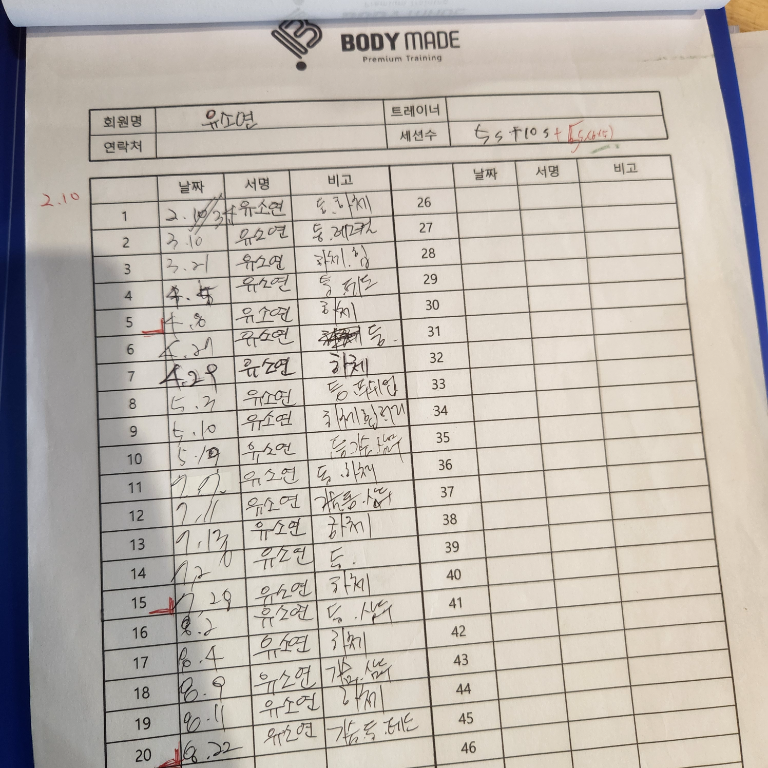 BODY MADE
Premium Training
회원명 유소연 트레이너
연락처 세션수 5s+10s+
2.10
날짜 서명 비고 날짜 서명 비고
1 유소연 등.하체 26
2 3.10 유소연 27
3 3.21 유소연 하체.힙 28
4 유소연 29
5 4.8 유소연 하체 30
6 4.21 유소연 등. 31
7 4.29 유소연 하체 32
8 5.3 유소연 33
9 5.10 유소연 34
10 5.19 유소연 35
11 유소연 등.하체 36
12 7.11 유소연 가슴.등.삼두 37
13 7.13 유소연 하체 38
14 유소연 등. 39
15 7.28 유소연 하체 40
16 8.2 유소연 등.삼두 41
17 8.4 유소연 하체 42
18 8.9 유소연 가슴.삼두 43
19 8.11 유소연 하체 44
20 8.22 유소연 45
46